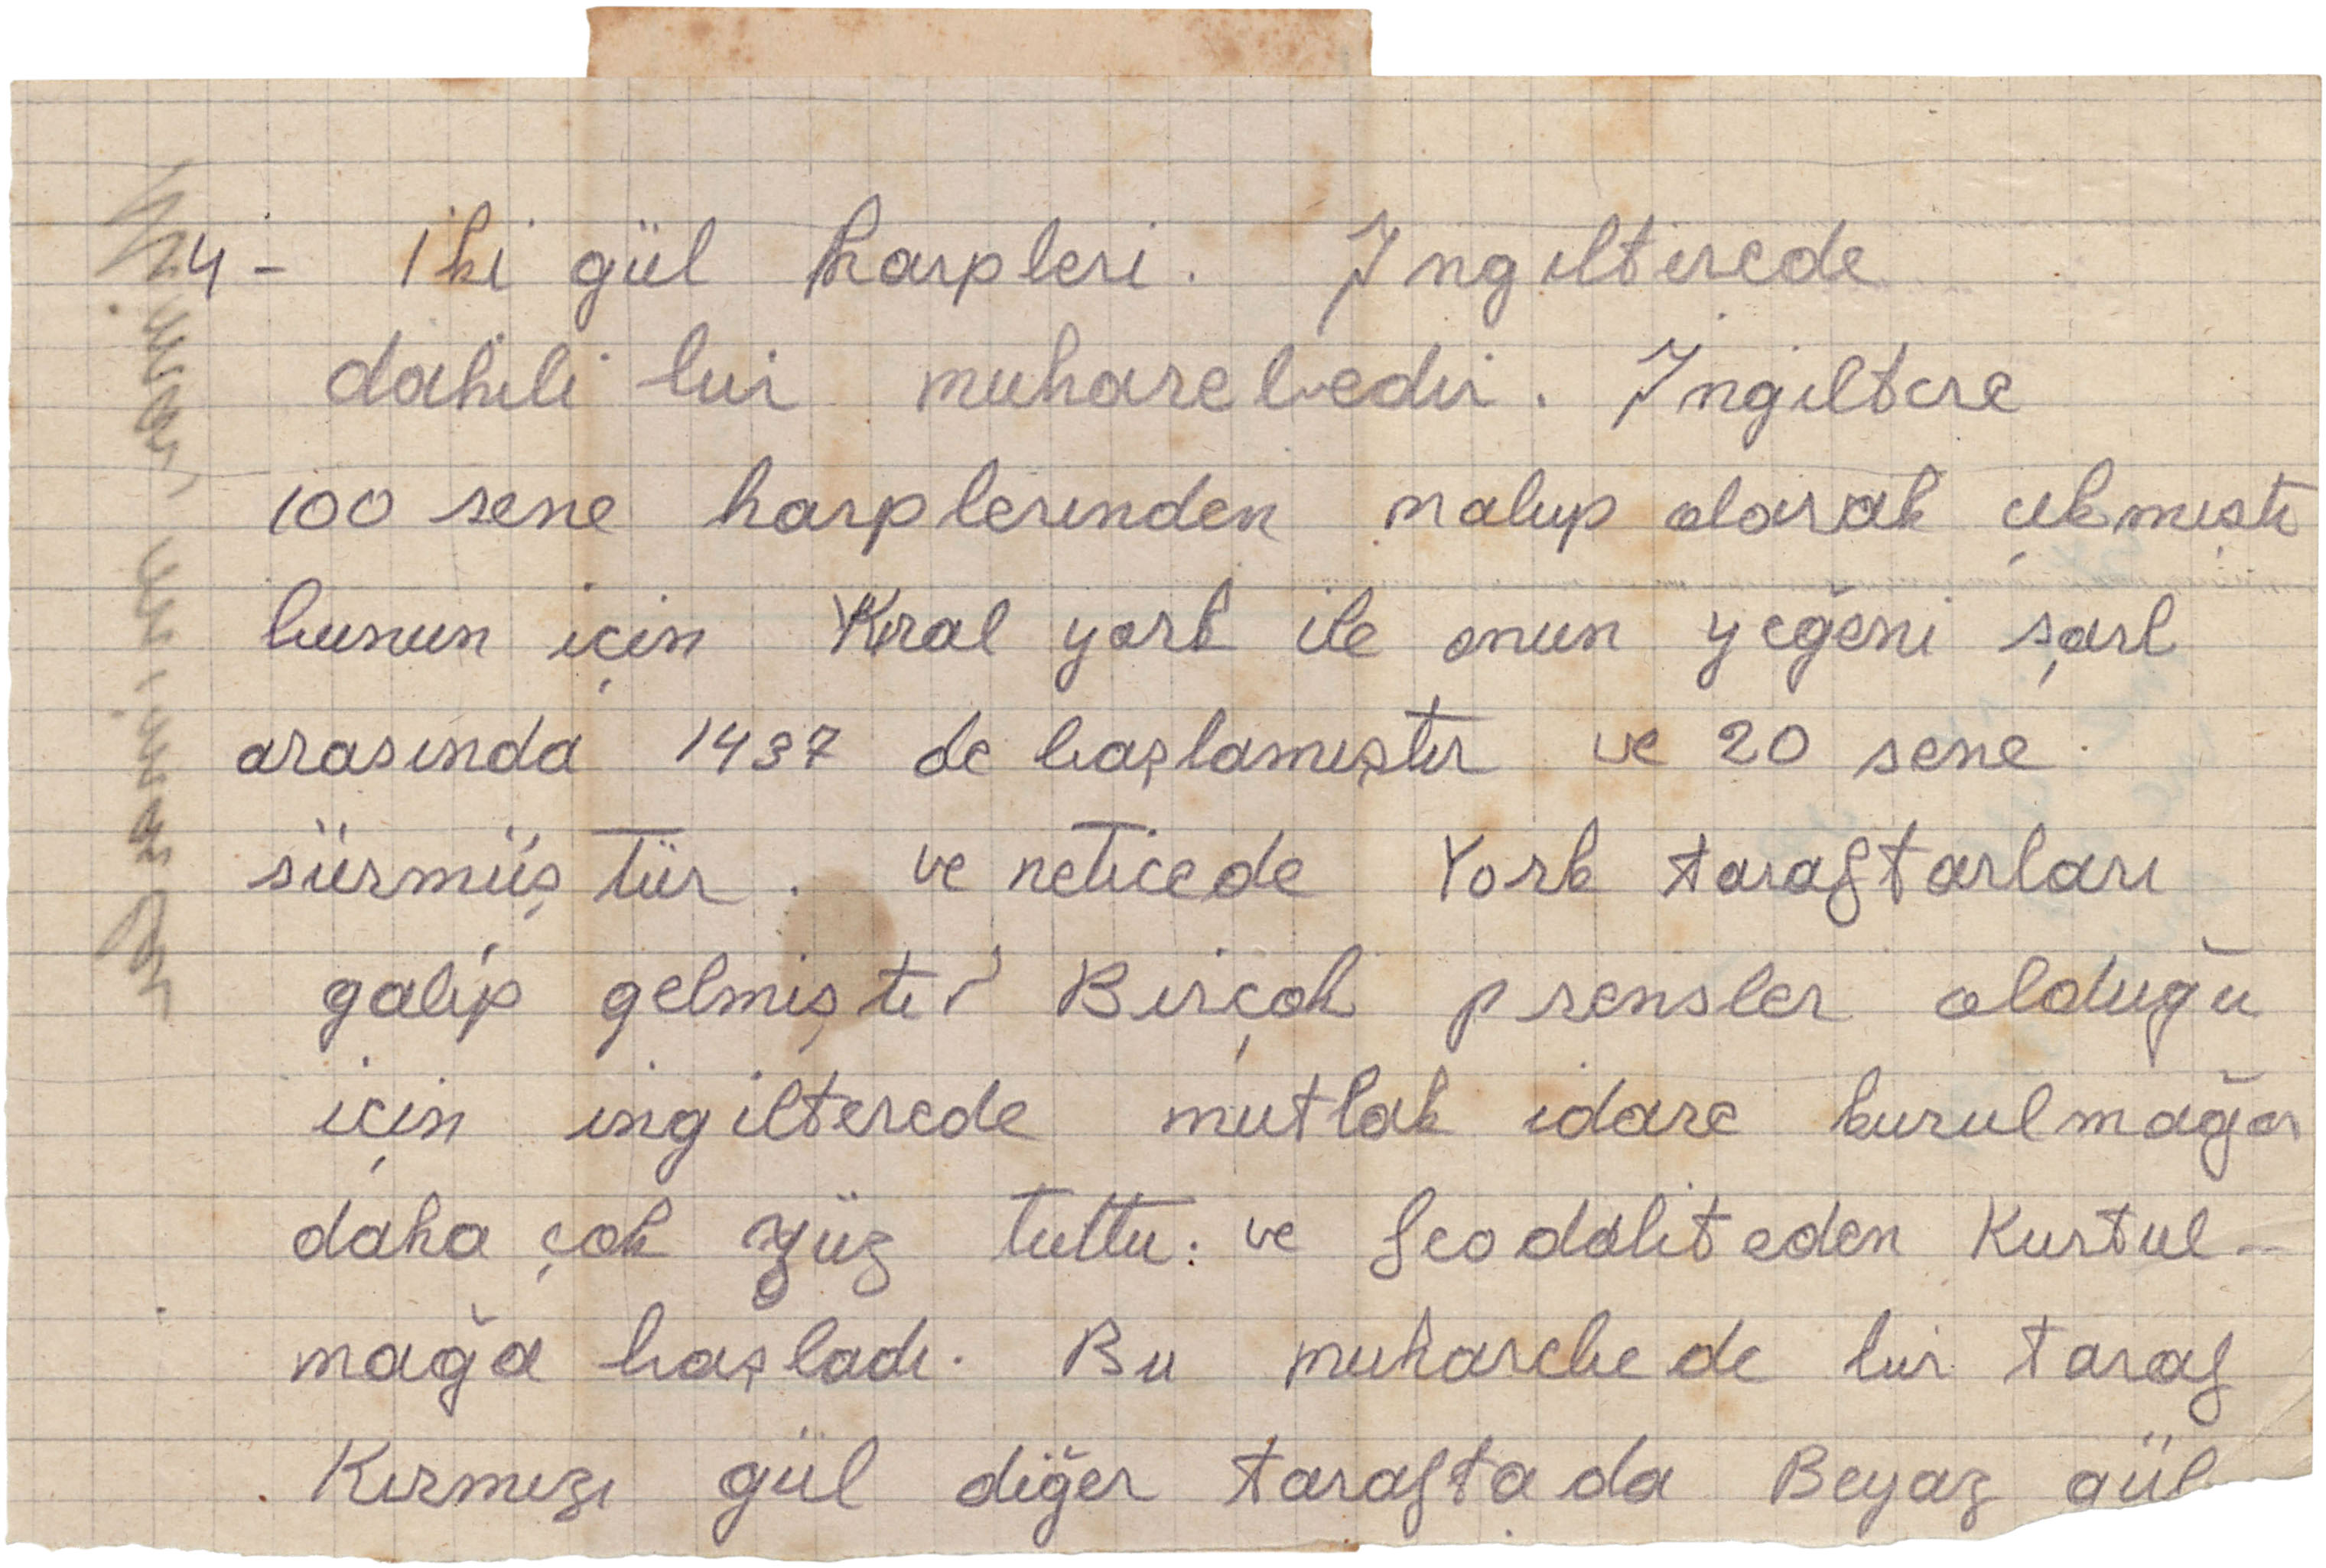 4- Iki gül harpleri. Ingilterede
dahili bir muharebedir. Ingiltere
100 sene harplerinden malup olarak çıkmıştı
bunun için Kral york ile onun yeğeni şarl
arasında 1437 de başlamıştır ve 20 sene
sürmüştür. ve neticede York taraftarları
galip gelmiştir Birçok prensler olduğu
için ingilterede mutlak idare kurulmağa
daha çok yüz tuttu. ve feodaliteden Kurtul-
mağa başladı. Bu muharebede bir taraf
Kırmızı gül diğer taraftada Beyaz gül